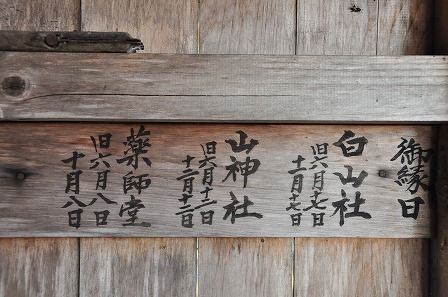 御縁日
白山社
旧六月十七日
十一月十七日
山神社
旧六月十二日
十二月十二日
薬師堂
旧六月八日
十月八日